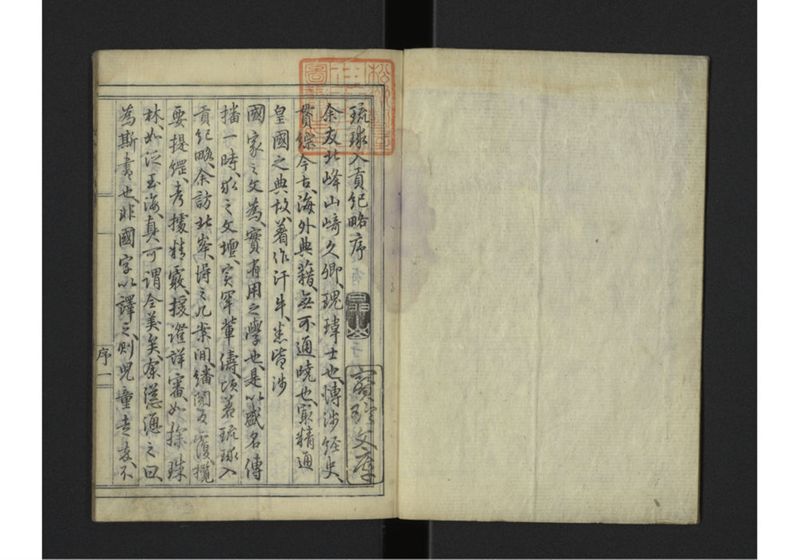 琉球入貢紀略序
余友北峰山崎久卿瑰瑋士也博涉經史
貫綜今古海外典籍無不通曉也寂精通
皇國之典故著作汗牛悉皆涉
國家之文為實有用之學也是以盛名傳
播一時求之文壇實罕輩儔頃著琉球入
貢紀略余訪北峯得之几案間繙閱反覆攬
要提綱考據精覈援證詳審如探珠
林如泛玉海真可謂全美矣余慫慂之曰
為斯書也非國字以譯之則兒童走卒不
序一
寶玲文庫